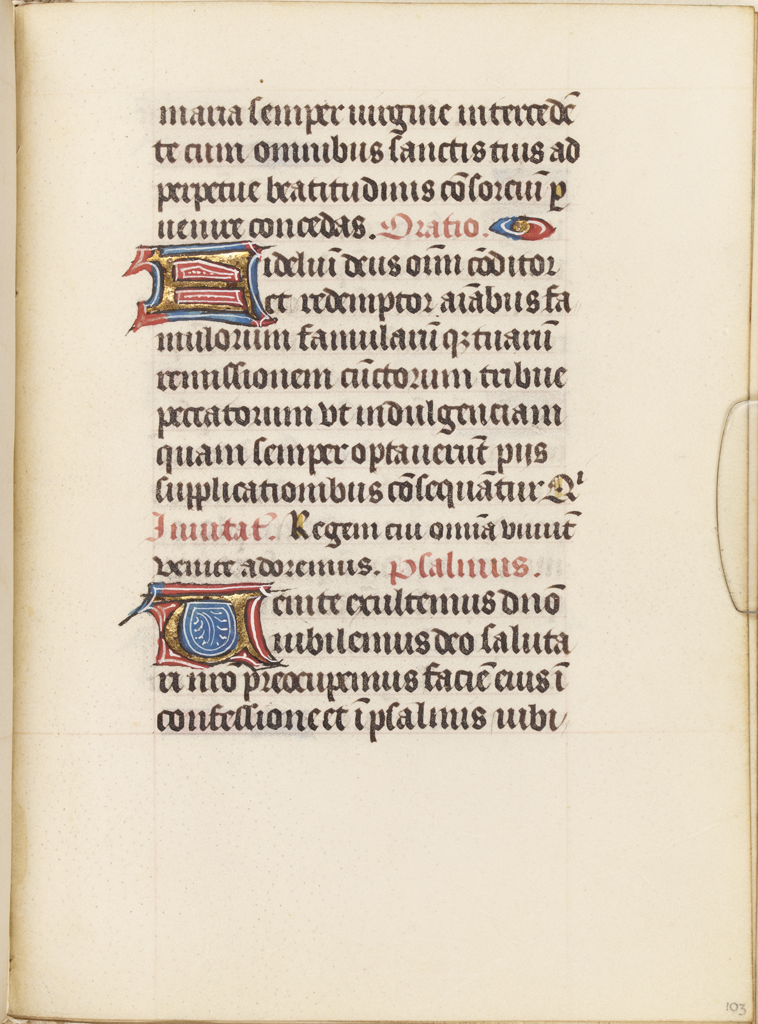 maria semper uirgine intercedē
te cum omnibus sanctis tuis ad
perpetue beatitudinis cōsorciū ꝑ
uenire concedas. Oratio.
Fideliū deus oīm cōditor
et redemptor aīabus fa
mulorum famularū qꝫ tuarū
remissionem cūctorum tribue
peccatorum vt indulgenciam
quam semper optauerūt piis
supplicationibus cōsequātur Qⁱ
Inuitat̄. Regem cui omīa viuūt
venite adoremus. psalmus.
Uenite exultemus dn̄o
iubilemus deo saluta
ri nr̄o preocupemus faciē eius ī
confessione et ī psalmis iubi
103